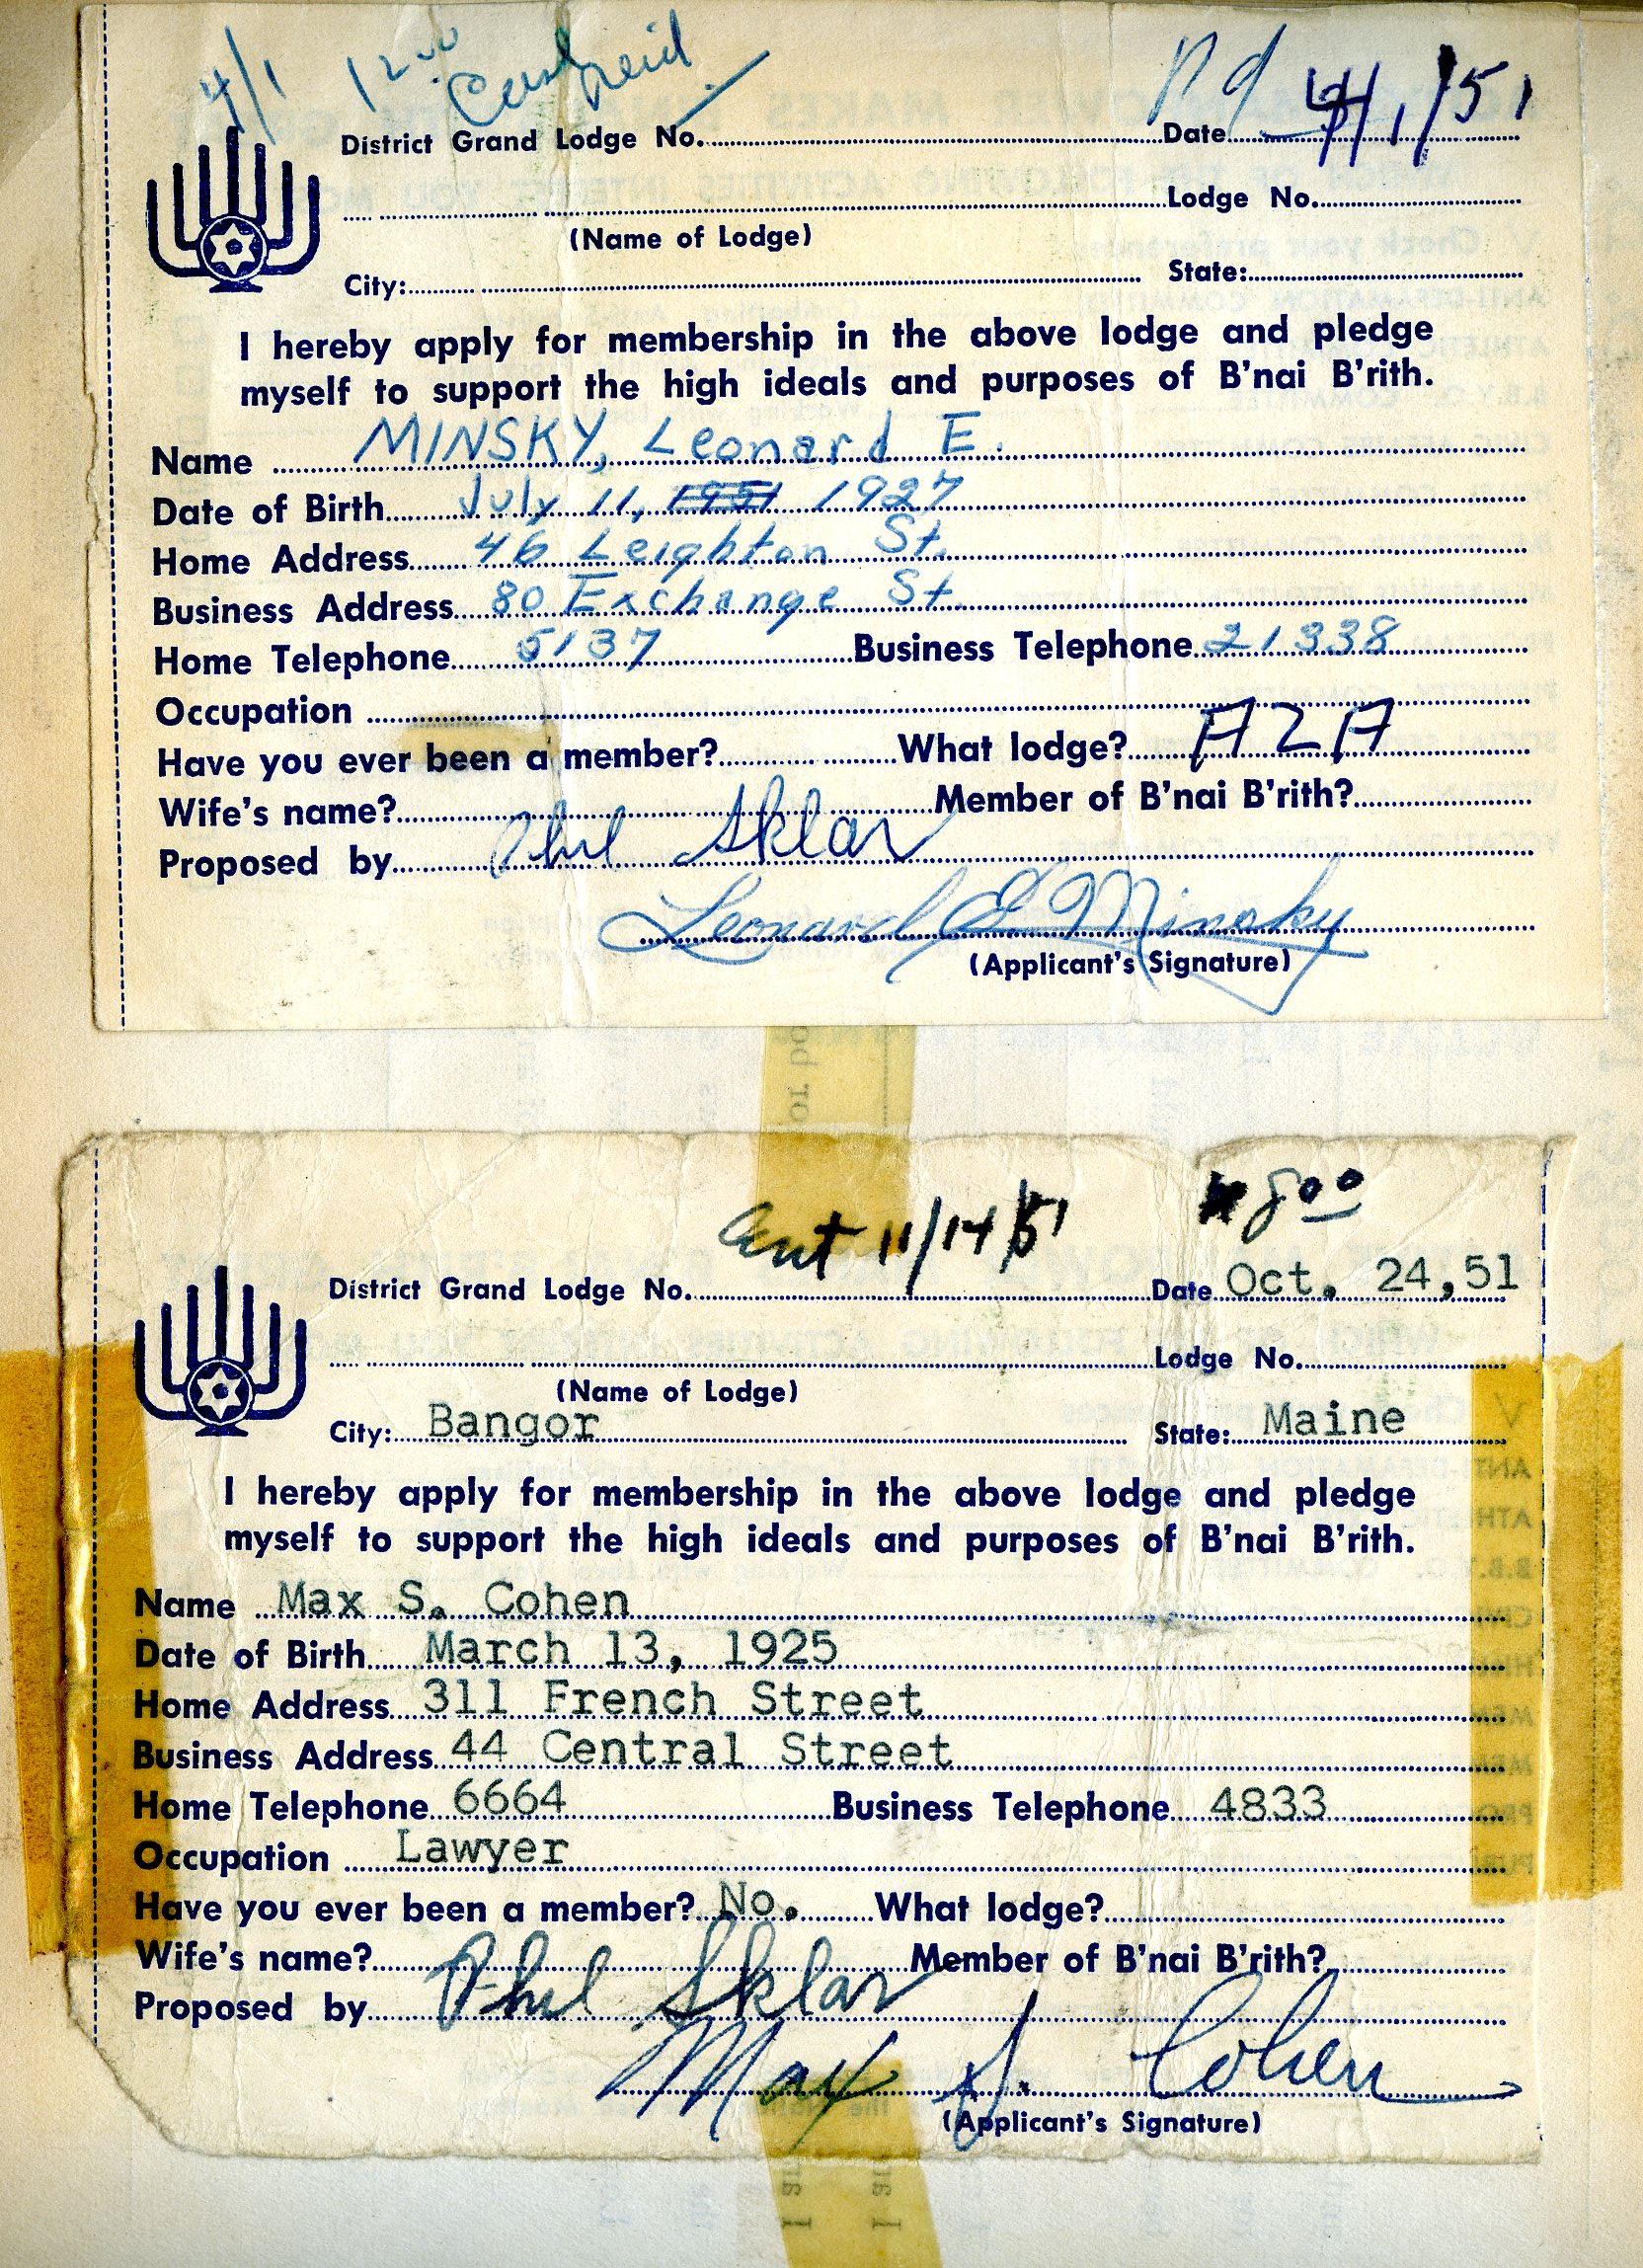 4/1 12.00 Cash paid
Pd
District Grand Lodge No. Date 4/1/51
Lodge No.
(Name of Lodge)
City: State:
I hereby apply for membership in the above lodge and pledge
myself to support the high ideals and purposes of B'nai B'rith.
Name MINSKY, Leonard E.
Date of Birth July 11, 1951 1927
Home Address 46 Leighton St.
Business Address 80 Exchange St.
Home Telephone 5137 Business Telephone 21338
Occupation
Have you ever been a member? What lodge? AZA
Wife's name? Member of B'nai B'rith?
Proposed by Phil Sklar
Leonard E Minsky
(Applicant's Signature)
8.00
11/14/51
District Grand Lodge No. Date Oct. 24,51
Lodge No.
(Name of Lodge)
City: Bangor State: Maine
I hereby apply for membership in the above lodge and pledge
myself to support the high ideals and purposes of B'nai B'rith.
Name Max S. Cohen
Date of Birth March 13, 1925
Home Address 311 French Street
Business Address 44 Central Street
Home Telephone 6664 Business Telephone 4833
Occupation Lawyer
Have you ever been a member? No. What lodge?
Wife's name? Member of B'nai B'rith?
Proposed by Phil Sklar
Max S. Cohen
(Applicant's Signature)